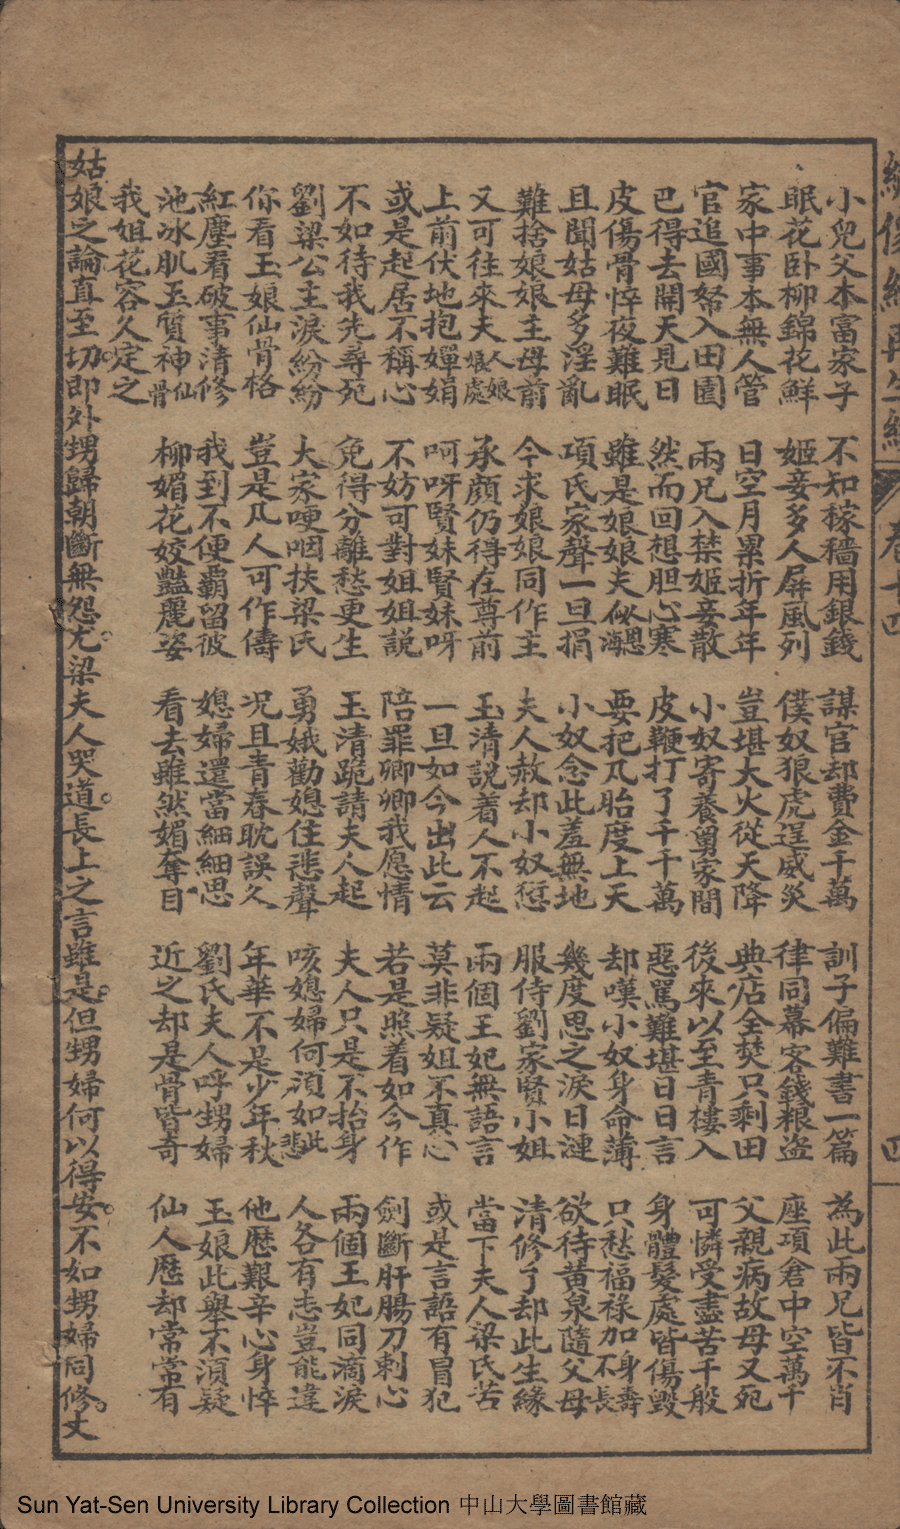 小兒父本富家子 不知稼穡用銀錢 謀官却費金千萬 訓子偏難書一篇 為此兩兄皆不肖
眠花卧柳錦花鮮 姬妾多人屏風列 僕奴狼虎逞威災 律同幕客錢粮盗 座項倉中空萬千
家中事本無人管 日空月累折年年 豈堪大火從天降 典店全焚只剩田 父親病故母又死
官追國帑入田園 兩兄入禁姬妾散 小奴寄養舅家間 後來以至青樓入 可憐受盡苦千般
巴得去開天見日 然而回想胆心寒 皮鞭打了千千萬 惡罵難堪日日言 身體髮處皆傷毀
皮傷骨悴夜難眠 雖是娘娘夫似海恩 要把凡胎度上天 却嘆小奴身命薄 只愁福祿加身不壽長
且聞姑母多淫亂 項氏家聲一旦捐 小奴念此羞無地 幾度思之淚日漣 欲待黄泉隨父母
難捨娘娘主母前 今求娘娘同作主 夫人赦却小奴愆 服侍劉家賢小姐 清修了却此生緣
又可往來夫人娘娘處 承顏仍得在尊前 玉清說着人不起 兩個王妃無語言 當下夫人梁氏苦
上前伏地抱嬋娟 呵呀賢妹賢妹呀 一旦如今出此云 莫非疑姐不真心 或是言語有冒犯
或是起居不稱心 不妨可對姐姐説 陪罪卿卿我愿情 若是照着如今作 劍斷肝腸刀刺心
不如待我先尋死 免得分離愁更生 玉清跪請夫人起 夫人只是不抬身 兩個王妃同滴淚
劉梁公主淚紛紛 大家哽咽扶梁氏 勇娥勸媳住悲聲 咳媳婦何須如此悲 人各有志豈能違
你看玉娘仙骨格 豈是凡人可作儔 况且青春耽誤久 年華不是少年秋 他歷艱辛心身悴
紅塵看破事清修 我到不便霸留彼 媳婦還當細細思 劉氏夫人呼甥婦 玉娘此舉不須疑
池冰肌玉質神仙骨 柳媚花姣豔麗姿 看去雖然媚奪目 近之却是骨皆奇 仙人歷却常常有
我姐花容久定之
姑娘之論直至切即外甥歸朝斷無怨尤梁夫人哭道長上之言雖是但甥婦何以得安不如甥婦同修丈
Sun Yat-Sen University Library Collection 中山大學圖書館藏